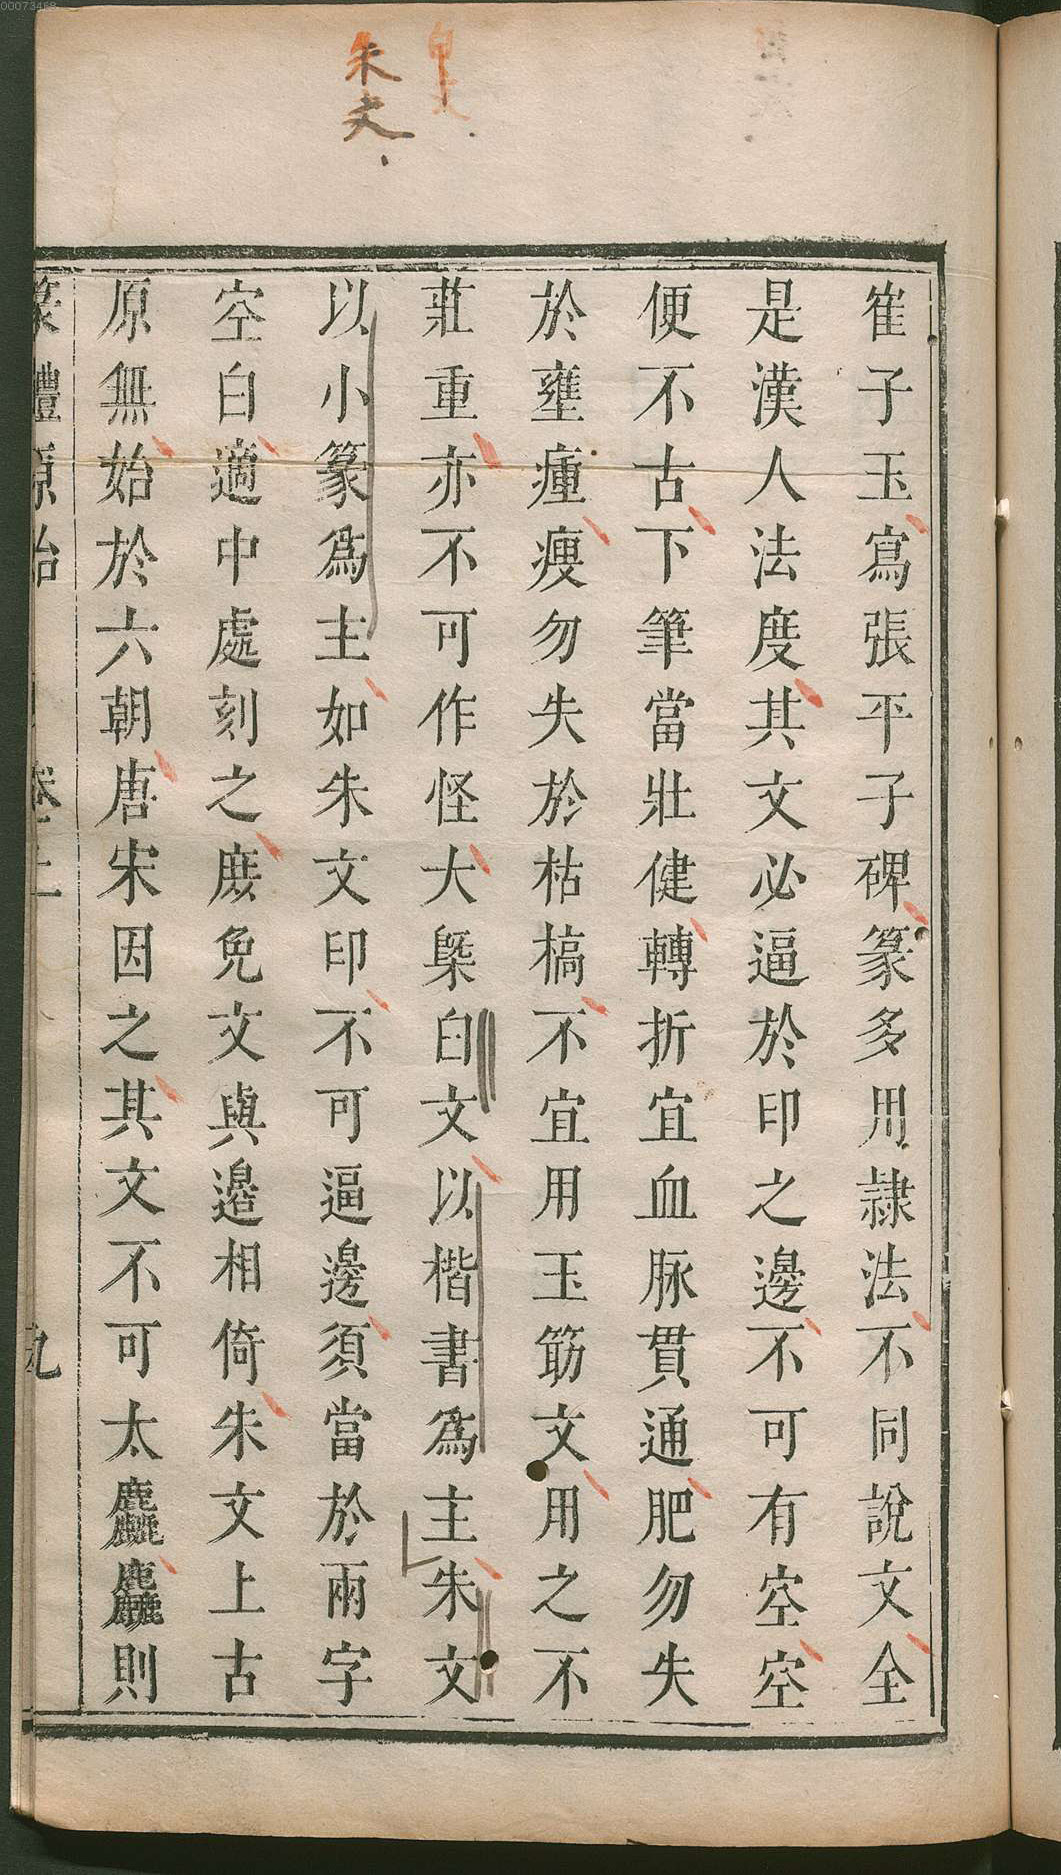 00073468
白文
朱文
崔子玉寫張平子碑篆多用隷法不同說文全
是漢人法度其文必逼於印之邊不可有空空
便不古下筆當壯健轉折宜血脉貫通肥勿失
於壅瘇瘦勿失於枯槁不宜用玉筯文用之不
莊重亦不可作怪大槩白文以楷書爲主朱文
以小篆爲主如朱文印不可逼邊須當於兩字
空白適中處刻之庶免文與邉相倚朱文上古
原無始於六朝唐宋因之其文不可太麤麤則
篆體原始 卷上 九